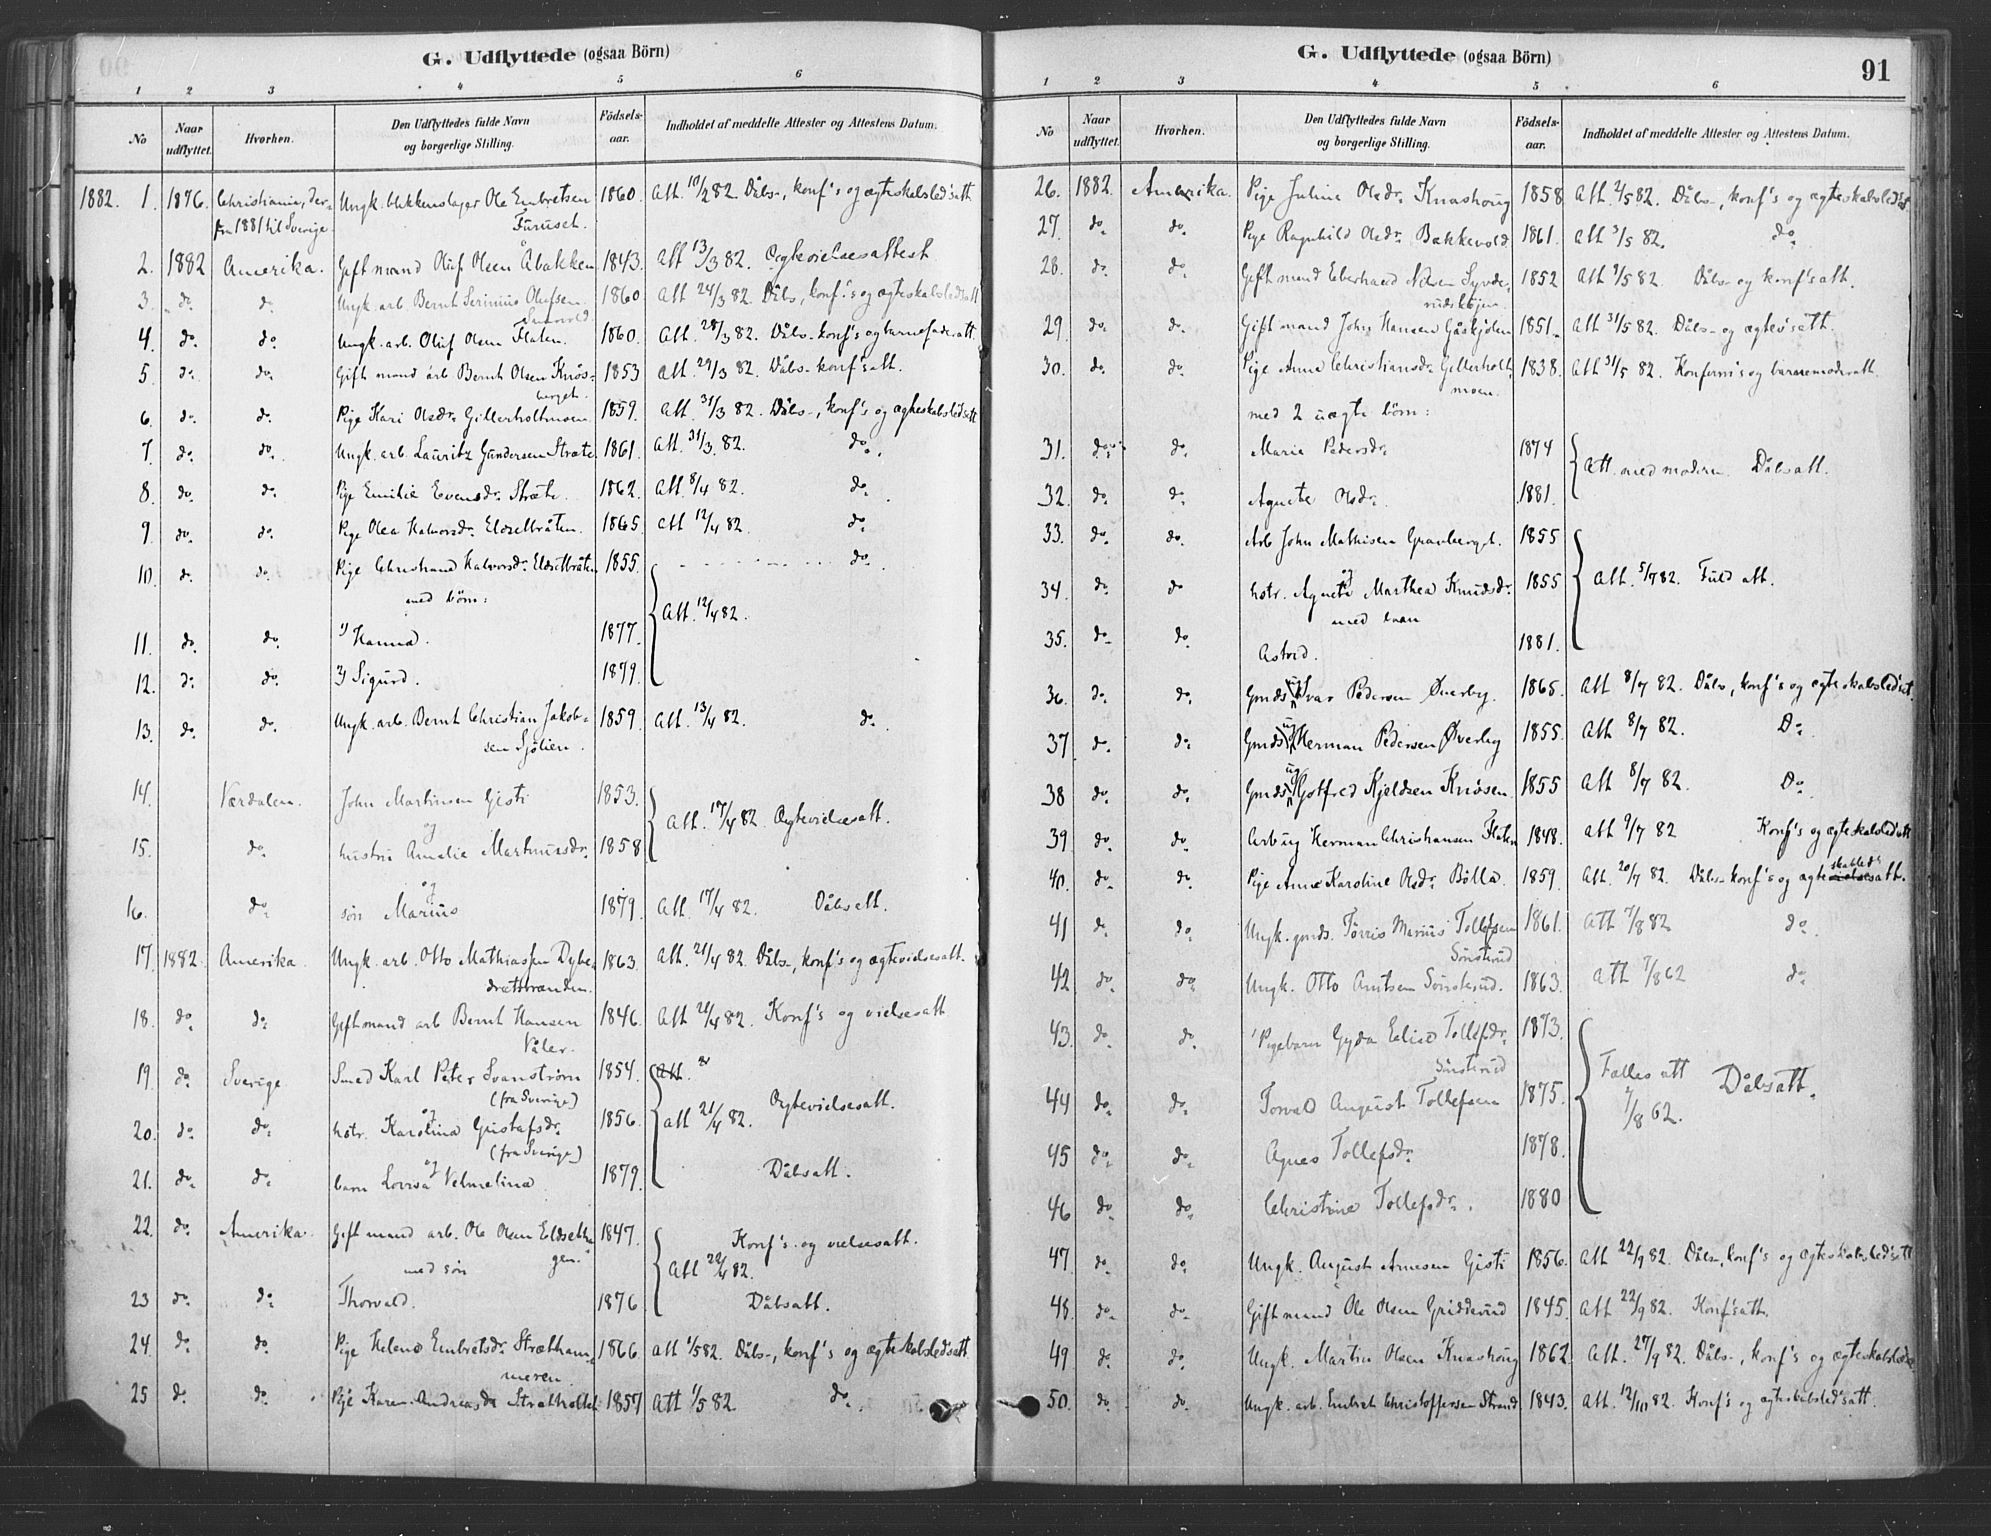 G. Udflyttede (ogsaa Börn)
1 2 3 4 5 6
No Naar udflyttet. Hvorhen. Den Udflyttedes fulde Navn og borgerlige Stilling. Födsels-aar. Indholdet af meddelte Attester og Attestens Datum.
1882. 1. 1876. Christiania, der- Ungk. blikkenslager Ole Embretsen 1860. Att. 10/2 82. Dåbs-, konf's og ægteskabsled's att
fra 1881 til Sverige. Furuset.
2. 1882 Amerika. Gift mand Oluf Olsen Åbakken 1843. Att 13/3 82. Ægtevielsesattest
3. do. do. Ungk. arb. Bernt Serinius Olufsen 1860. Att 24/3 82. Dåbs, konf's og ægteskabsledsatt
4. do. do. Ungk. arb. Oluf Olsen Flaten. 1860. Att. 28/3 82. Dåbs- konf's og barnefaderatt.
5. do. do. Gift mand arb Bernt Olsen Knös- 1853 Att. 29/3 82. Dåbs- konf'satt.
berget.
6. do. do. Pige Kari Olsdr. Gillerholtmoen 1859. Att. 31/3 82. Dåbs-, konf's og ægteskabsledsatt
7. do. do. Ungk. arb. Lauritz Gundersen Stræte 1861. Att. 31/3. 82. do.
8. do. do. Pige Emilie Evensdr. Stræte. 1862. Att. 8/4 82. do.
9. do. do. Pige Olea Halvorsdr. Eldsetbråten. 1865. Att 12/4 82. do.
10. do. do. Pige Christiane Halvorsdr. Eldsetbråten 1855. do.
med börn:
Att. 12/4 82.
11. do. do. 1) Hanna. 1877.
12. do. do. 2) Sigurd. 1879.
13. do. do. Ungk. arb. Bernt Christian Jakob- 1859. Att. 13/4 82. do.
sen Sjölien.
14. Værdalen. John Martinsen Gjsti 1853.
og Att. 17/4 82 Ægtevielsesatt.
15. do. hustru Amalie Martinusdr. 1858
og
16. do. sön Marius 1879. Att. 17/4 82. Dåbsatt.
17. 1882. Amerika. Ungk. arb. Otto Mathiassen Dybe- 1863. Att. 21/4 82. Dåbs-, konf's og ægtevielsesatt.
drætsbranden.
18. do. do. Gift mand arb Bernt Hansen 1846. Att 21/4 82. Konf's og vielsesatt
Våler.
19. do. Sverige Smed Karl Peter Svanström 1854. Att.
(fra Sverige) Ægtevielsesatt.
og att 21/4 82.
20. do. do. hstr. Karolina Gustafsdr. 1856.
(fra Sverige)
og Dåbsatt.
21. do. do. barn Lovisa Velmelina 1879.
22. do. Amerika. Gift mand arb. Ole Olsen Eldsetha- 1847. Konf's og vielsesatt.
med sön gen. Att 22/4 82.
23 do. do. Thorvald. 1876 Dåbsatt.
24. do. do. Pige Helene Embretsdr. Strætham- 1866. att 1/5 82. Dåbs-, konf's og ægteskabsled'satt
meren.
25 do. do. Pige Karen Andreasdr Strætholtet 1857 Att 1/5 82. do.
G. Udflyttede (ogsaa Börn) 91
1 2 3 4 5 6
No Naar udflyttet. Hvorhen. Den Udflyttedes fulde Navn og borgerlige Stilling. Födsels-aar. Indholdet af meddelte Attester og Attestens Datum.
26. 1882. Amerika. Pige Juline Olsdr. Knashoug 1858 Att 2/5 82. Dåbs-, konf's og ægteskabsled'satt
27. do. do. Pige Ragnhild Olsdr. Bakkevold 1861. Att 3/5 82. do.
28. do. do. Gift mand Eberhard Nilsen Syvde- 1852 Att 9/5 82. Dåbs- og konf'satt.
29. do. do. Gift mand John Hansen Gåskjölen 1851. Att 31/5 82. Dåbs- og ægtev'satt.
30. do. do. Pige Anne Christiansdr. Gillerholt- 1838. Att 31/5 82. Konferm's og barnemoderatt.
moen.
med 2 uægte börn:
31. do. do. Marie Pedersdr. 1874
Att. med modren Dåbsatt.
32. do. do. Agnete Olsdr. 1881.
33. do. do. Arb John Mathisen Gravberget. 1855
og Att. 5/7 82. Fuld att.
34. do. do hstr. Agnete Marthea Knudsdr. 1855
med barn
35. do. do Astrid. 1881.
36. do. do. Gmds ug Ivar Pedersen Øverby. 1865. Att 8/7 82. Dåbs, konf's og ægteskabsled'satt.
37 do. do. Gmds ug Herman Pedersen Øverby 1855. Att 8/7 82. Do.
38 do. do. Gmds ug Gotfred Kjeldsen Knösen. 1855 Att 8/7 82. Do.
39 do. do. Arb ug Herman Christiansen Flaten 1848. Att 9/7 82 Konf's og ægteskabsled'satt
40. do. do. Pige Anne Karoline Olsdr. Bölla. 1859. Att. 20/7 82. Dåbs- konf's og ægteskableds vielsesatt.
41 do. do. Ungk. gmds. Törris Marius Tollefsen 1861. Att 7/8 82 do.
Sönsterud
42 do. do. Ungk. Otto Arntsen Sönsterud. 1863. Att 7/8 62 do.
43. do. do. Pigebarn Gyda Elise Tollefsdr. 1873.
Sönsterud Fælles att Dåbsatt.
44 do. do. Torvald August Tollefsen 1875. 7/8 62.
45 do. do. Agnes Tollefsdr. 1878.
46 do. do. Christine Tollefsdr. 1880
47. do. do. Ungk. August Arnesen Gjsti 1856. Att 22/9 82. Dåbs-, konf's og ægteskabsled'satt
48. do. do. Gift mand Ole Olsen Griddevud 1845. Att 22/9 82. Konf'satt.
49 do. do. Ungk. Martin Olsen Knashoug 1862. Att. 27/9 82. Dåbs-, konf's og ægteskabsleds
50. do. do. Ungk. arb. Embret Christoffersen Strand 1843. Att. 12/10 82. Konf's og ægteskabsled'satt.